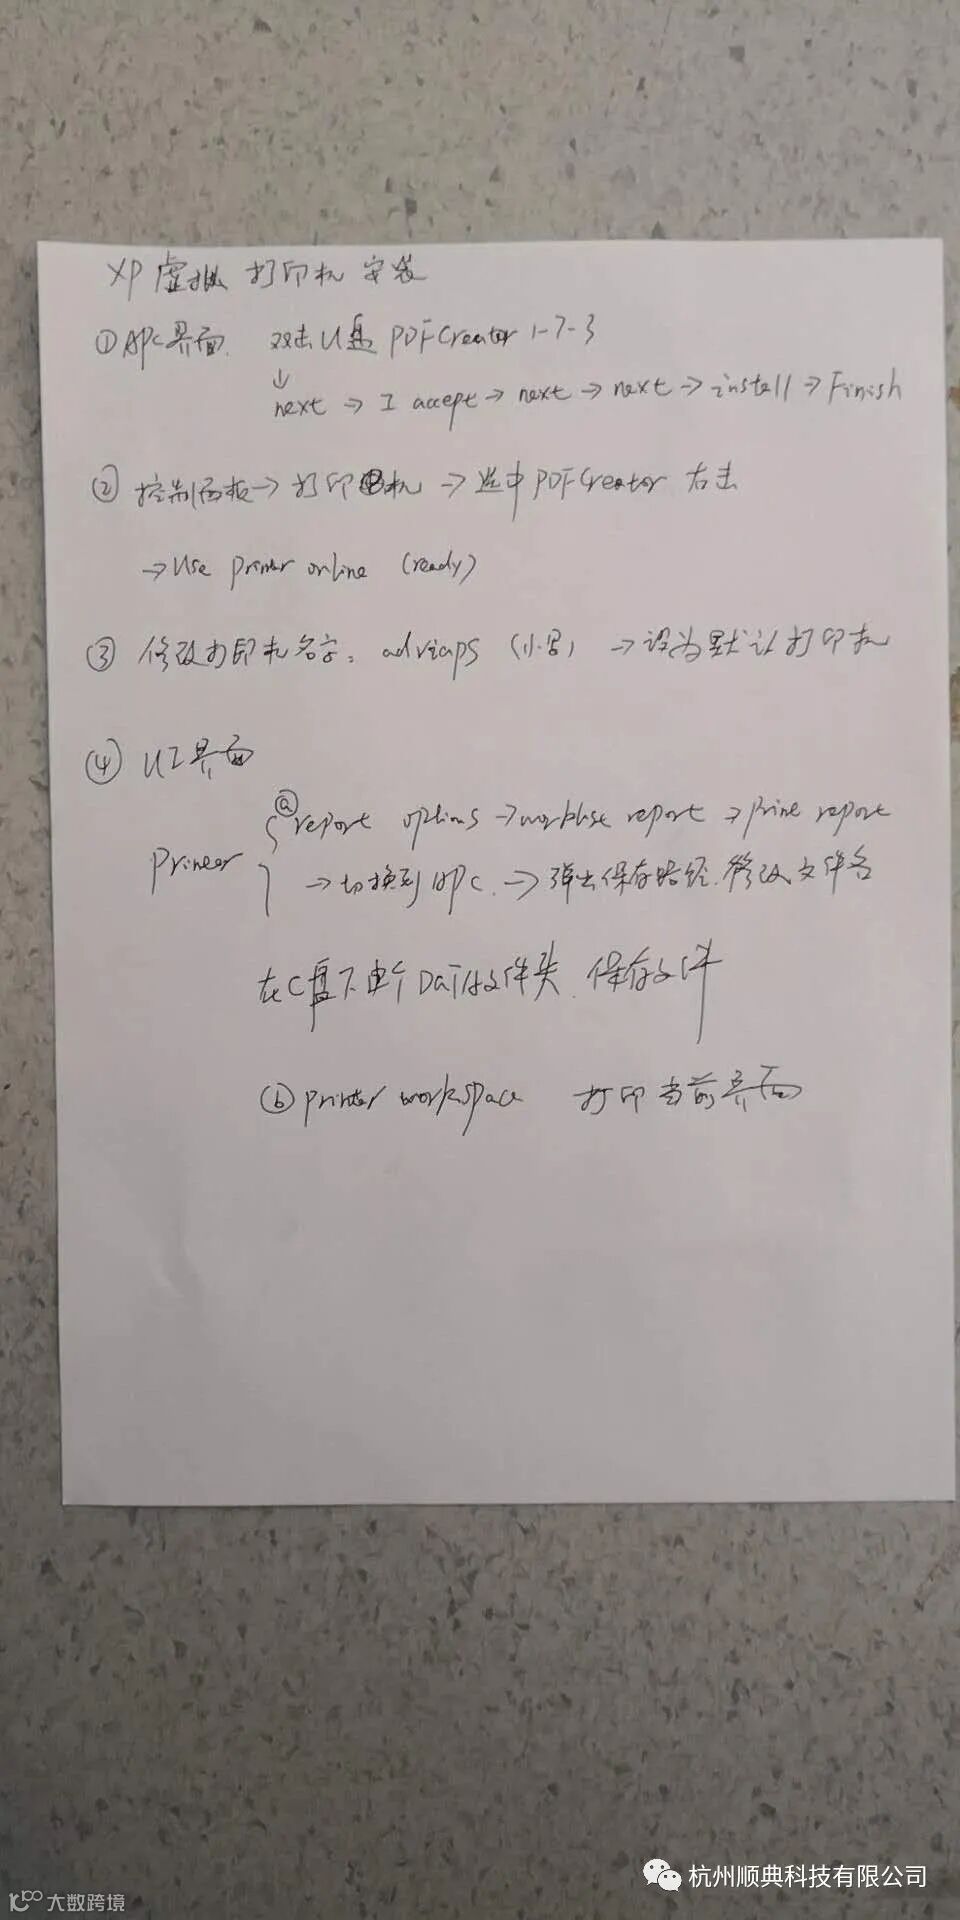 XP 虚拟打印机安装
① APC界面. 双击U盘 PDFCreator 1-7-3
↓
next → I accept → next → next → install → Finish
② 控制面板 → 打印机 → 选中PDFCreator 右击
→ Use printer online (ready)
③ 修改打印机名字: adviaps (小写) → 设为默认打印机
④ UI界面
ⓐ report options → worklist report → print report
Printer
→ 切换到 APC. → 弹出保存路径. 修改文件名
在C盘下建个 Data文件夹. 保存文件
ⓑ printer workspace 打印当前界面
杭州顺典科技有限公司
大数跨境